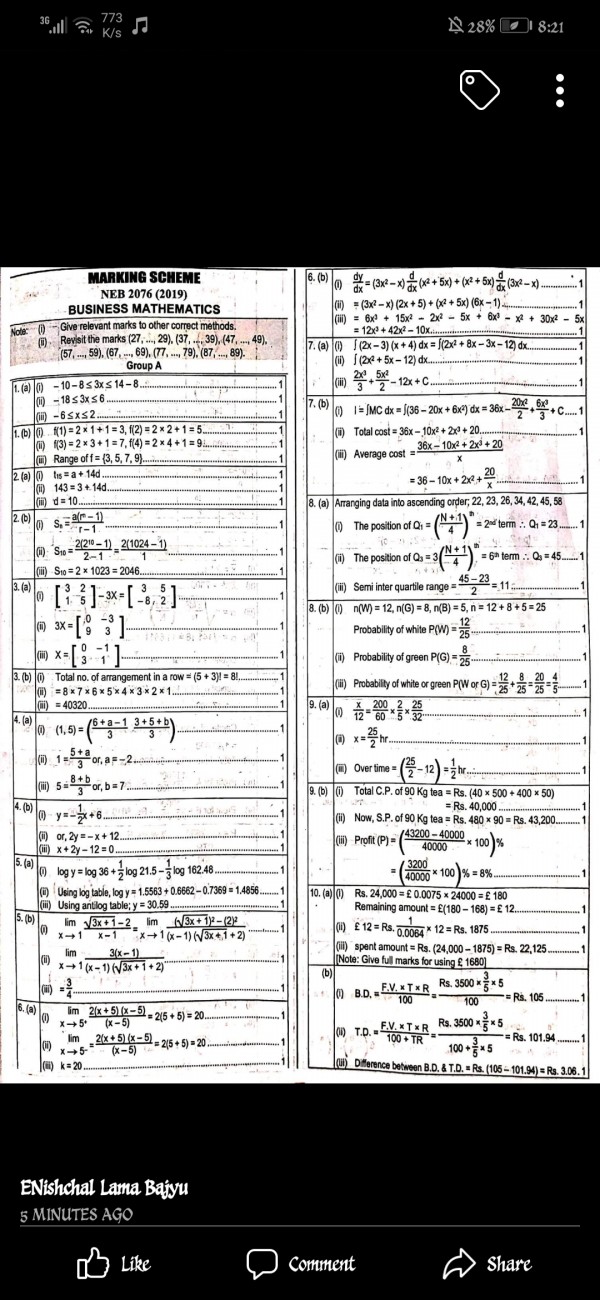 3G 773 K/s 28% 8:21
MARKING SCHEME
NEB 2076 (2019)
BUSINESS MATHEMATICS
Note: (i) Give relevant marks to other correct methods.
(ii) Revisit the marks (27, ..., 29), (37, ..., 39), (47, ..., 49),
(57, ..., 59), (67, ..., 69), (77, ..., 79), (87, ..., 89).
Group A
1. (a) (i) – 10 – 8 ≤ 3x ≤ 14 – 8 1
(ii) – 18 ≤ 3x ≤ 6 1
(iii) – 6 ≤ x ≤ 2 1
1. (b) (i) f(1) = 2 × 1 + 1 = 3, f(2) = 2 × 2 + 1 = 5 1
(ii) f(3) = 2 × 3 + 1 = 7, f(4) = 2 × 4 + 1 = 9 1
(iii) Range of f = {3, 5, 7, 9} 1
2. (a) (i) t₁₅ = a + 14d 1
(ii) 143 = 3 + 14d 1
(iii) d = 10 1
2. (b) (i) Sₙ = a(rⁿ – 1)/(r – 1) 1
(ii) S₁₀ = 2(2¹⁰ – 1)/(2 – 1) = 2(1024 – 1)/1 1
(iii) S₁₀ = 2 × 1023 = 2046 1
3. (a) (i) [3 2; 1 5] – 3X = [3 5; –8 2] 1
(ii) 3X = [0 –3; 9 3] 1
(iii) X = [0 –1; 3 1] 1
3. (b) (i) Total no. of arrangement in a row = (5 + 3)! = 8! 1
(ii) = 8 × 7 × 6 × 5 × 4 × 3 × 2 × 1 1
(iii) = 40320 1
4. (a) (i) (1, 5) = ((6 + a – 1)/3, (3 + 5 + b)/3) 1
(ii) 1 = (5 + a)/3 or, a = – 2 1
(iii) 5 = (8 + b)/3 or, b = 7 1
4. (b) (i) y = – 1/2 x + 6 1
(ii) or, 2y = – x + 12 1
(iii) x + 2y – 12 = 0 1
5. (a) (i) log y = log 36 + 1/2 log 21.5 – 1/3 log 162.48 1
(ii) Using log table, log y = 1.5563 + 0.6662 – 0.7369 = 1.4856 1
(iii) Using antilog table; y = 30.59 1
5. (b) (i) lim x → 1 (√3x + 1 – 2)/(x – 1) = lim x → 1 ((√3x + 1)² – (2)²)/((x – 1) (√3x + 1 + 2)) 1
(ii) lim x → 1 3(x – 1)/((x – 1) (√3x + 1 + 2)) 1
(iii) = 3/4 1
6. (a) (i) lim x → 5⁺ 2(x + 5) (x – 5)/(x – 5) = 2(5 + 5) = 20 1
(ii) lim x → 5⁻ = 2(x + 5) (x – 5)/(x – 5) = 2(5 + 5) = 20 1
(iii) k = 20 1
6. (b) (i) dy/dx = (3x² – x) d/dx (x² + 5x) + (x² + 5x) d/dx (3x² – x) 1
(ii) = (3x² – x) (2x + 5) + (x² + 5x) (6x – 1) 1
(iii) = 6x³ + 15x² – 2x² – 5x + 6x³ – x² + 30x² – 5x
= 12x³ + 42x² – 10x 1
7. (a) (i) ∫ (2x – 3) (x + 4) dx = ∫(2x² + 8x – 3x – 12) dx 1
(ii) ∫ (2x² + 5x – 12) dx 1
(iii) 2x³/3 + 5x²/2 – 12x + C 1
7. (b) (i) I = ∫MC dx = ∫(36 – 20x + 6x²) dx = 36x – 20x²/2 + 6x³/3 + C 1
(ii) Total cost = 36x – 10x² + 2x³ + 20 1
(iii) Average cost = (36x – 10x² + 2x³ + 20)/x
= 36 – 10x + 2x² + 20/x 1
8. (a) Arranging data into ascending order; 22, 23, 26, 34, 42, 45, 58
(i) The position of Q₁ = ((N + 1)/4)ᵗʰ = 2ⁿᵈ term ∴ Q₁ = 23 1
(ii) The position of Q₃ = 3((N + 1)/4)ᵗʰ = 6ᵗʰ term ∴ Q₃ = 45 1
(iii) Semi inter quartile range = (45 – 23)/2 = 11 1
8. (b) (i) n(W) = 12, n(G) = 8, n(B) = 5, n = 12 + 8 + 5 = 25
Probability of white P(W) = 12/25 1
(ii) Probability of green P(G) = 8/25 1
(iii) Probability of white or green P(W or G) = 12/25 + 8/25 = 20/25 = 4/5 1
9. (a) (i) x/12 = 200/60 × 2/5 × 25/32 1
(ii) x = 25/2 hr 1
(iii) Over time = (25/2 – 12) = 1/2 hr 1
9. (b) (i) Total C.P. of 90 Kg tea = Rs. (40 × 500 + 400 × 50)
= Rs. 40,000 1
(ii) Now, S.P. of 90 Kg tea = Rs. 480 × 90 = Rs. 43,200 1
(iii) Profit (P) = ((43200 – 40000)/40000 × 100)%
= (3200/40000 × 100)% = 8% 1
10. (a) (i) Rs. 24,000 = £ 0.0075 × 24000 = £ 180
Remaining amount = £(180 – 168) = £ 12 1
(ii) £ 12 = Rs. 1/0.0064 × 12 = Rs. 1875 1
(iii) spent amount = Rs. (24,000 – 1875) = Rs. 22,125 1
[Note: Give full marks for using £ 1680]
(b)
(i) B.D. = F.V. × T × R/100 = Rs. 3500 × 3/5 × 5/100 = Rs. 105 1
(ii) T.D. = F.V. × T × R/100 + TR = Rs. 3500 × 3/5 × 5/100 + 3/5 × 5 = Rs. 101.94 1
(iii) Difference between B.D. & T.D. = Rs. (105 – 101.94) = Rs. 3.06 1
ENishchal Lama Bajyu
5 MINUTES AGO
Like Comment Share